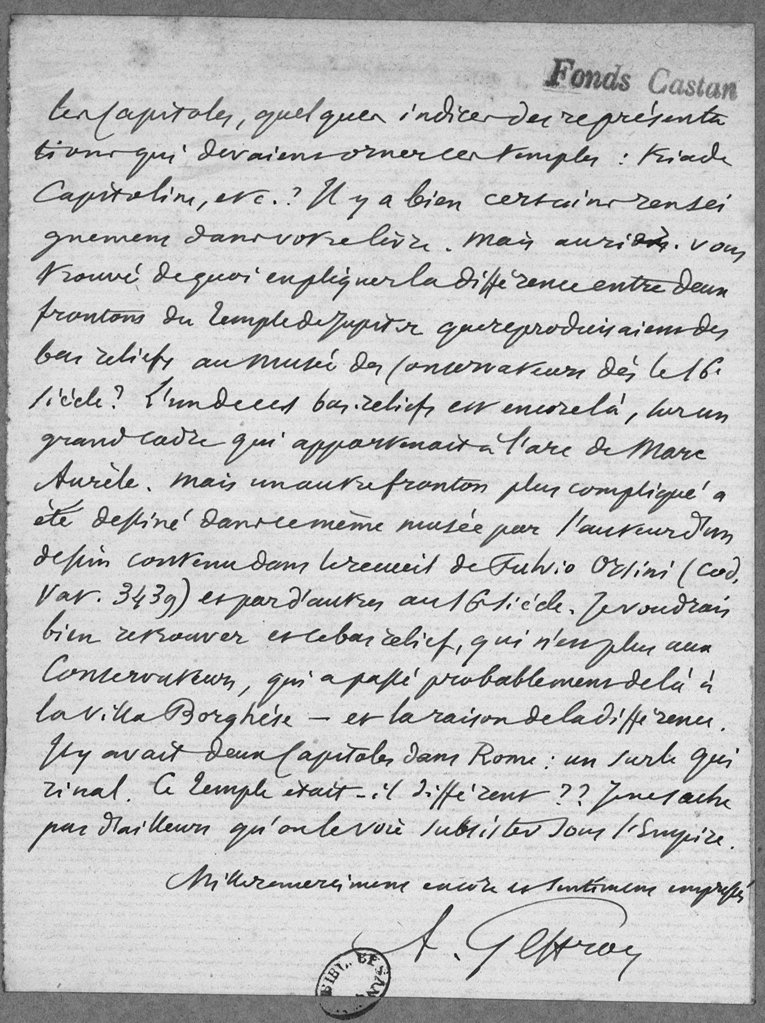 Fonds Castan
les Capitoles, quelques indices des représenta
tions qui devaient orner ces temples : triade
Capitoline, etc. ? Il y a bien certains rensei
gnemens dans votre livre. Mais auriez-vous
trouvé de quoi expliquer la différence entre deux
frontons du Temple de Jupiter que reproduisaient des
bas reliefs au musée des Conservateurs dès le 16e
siècle ? L'un de ces bas-reliefs est encore là, sur un
grand cadre qui appartenait à l'arc de Marc
Aurèle. Mais un autre fronton plus compliqué a
été dessiné dans le même musée par l'auteur d'un
dessin contenu dans le recueil de Fulvio Orsini (Cod.
Vat. 3439) et par d'autres au 16e siècle. Je voudrais
bien retrouver et ce bas relief, qui n'est plus aux
Conservateurs, qui a passé probablement de là à
la villa Borghèse — et la raison de la différence.
Il y avait deux Capitoles dans Rome : un sur le Qui
rinal. Ce Temple était-il différent ?? Je ne sache
pas d'ailleurs qu'on le voie subsister sous l'Empire.
Mille remerciemens encore et sentimens empressés
A. Geffroy
BIBL. BESAN